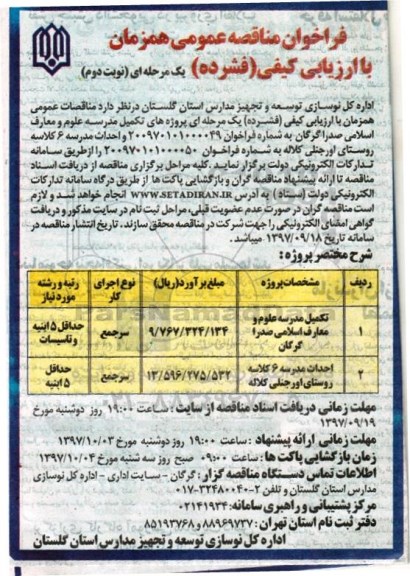 فراخوان مناقصه عمومی همزمان
با ارزیابی کیفی (فشرده) یک مرحله ای (نوبت دوم)
اداره کل نوسازی توسعه و تجهیز مدارس استان گلستان در نظر دارد مناقصات عمومی
همزمان با ارزیابی کیفی (فشرده) یک مرحله ای پروژه های تکمیل مدرسه علوم و معارف
اسلامی صدرا گرگان به شماره فراخوان ۲۰۰۹۷۰۱۰۱۰۰۰۰۴۹ و احداث مدرسه ۶ کلاسه
روستای اورجنلی کلاله به شماره فراخوان ۲۰۰۹۷۰۱۰۱۰۰۰۰۵۰ را از طریق سامانه
تدارکات الکترونیکی دولت برگزار نماید. کلیه مراحل برگزاری مناقصه از دریافت اسناد
مناقصه تا ارائه پیشنهاد مناقصه گران و بازگشایی پاکت ها از طریق درگاه سامانه تدارکات
الکترونیکی دولت (ستاد) به آدرس WWW.SETADIRAN.IR انجام خواهد شد و لازم
است مناقصه گران در صورت عدم عضویت قبلی، مراحل ثبت نام در سایت مذکور و دریافت
گواهی امضای الکترونیکی را جهت شرکت در مناقصه محقق سازند. تاریخ انتشار مناقصه در
سامانه تاریخ ۱۳۹۷/۰۹/۱۸ میباشد.
شرح مختصر پروژه:
ردیف مشخصات پروژه مبلغ برآورد (ریال) نوع اجرای کار رتبه و رشته مورد نیاز
۱ تکمیل مدرسه علوم و معارف اسلامی صدرا گرگان ۹/۷۶۷/۳۲۴/۱۳۴ سرجمع حداقل ۵ ابنیه و تاسیسات
۲ احداث مدرسه ۶ کلاسه روستای اورجنلی کلاله ۱۳/۵۹۶/۲۷۵/۵۳۲ سرجمع حداقل ۵ ابنیه
مهلت زمانی دریافت اسناد مناقصه از سایت: ساعت ۱۹:۰۰ روز دوشنبه مورخ
۱۳۹۷/۰۹/۱۹
مهلت زمانی ارائه پیشنهاد: ساعت ۱۹:۰۰ روز دوشنبه مورخ ۱۳۹۷/۱۰/۰۳
زمان بازگشایی پاکت ها: ساعت ۰۹:۰۰ صبح روز سه شنبه مورخ ۱۳۹۷/۱۰/۰۴
اطلاعات تماس دستگاه مناقصه گزار: گرگان - سایت اداری - اداره کل نوسازی
مدارس استان گلستان و تلفن ۲-۰۱۷-۳۲۴۸۰۰۴۰
مرکز پشتیبانی و راهبری سامانه: ۰۲۱۴۱۹۳۴
دفتر ثبت نام استان تهران: ۸۸۹۶۹۷۳۷ و ۸۵۱۹۳۷۶۸
اداره کل نوسازی توسعه و تجهیز مدارس استان گلستان